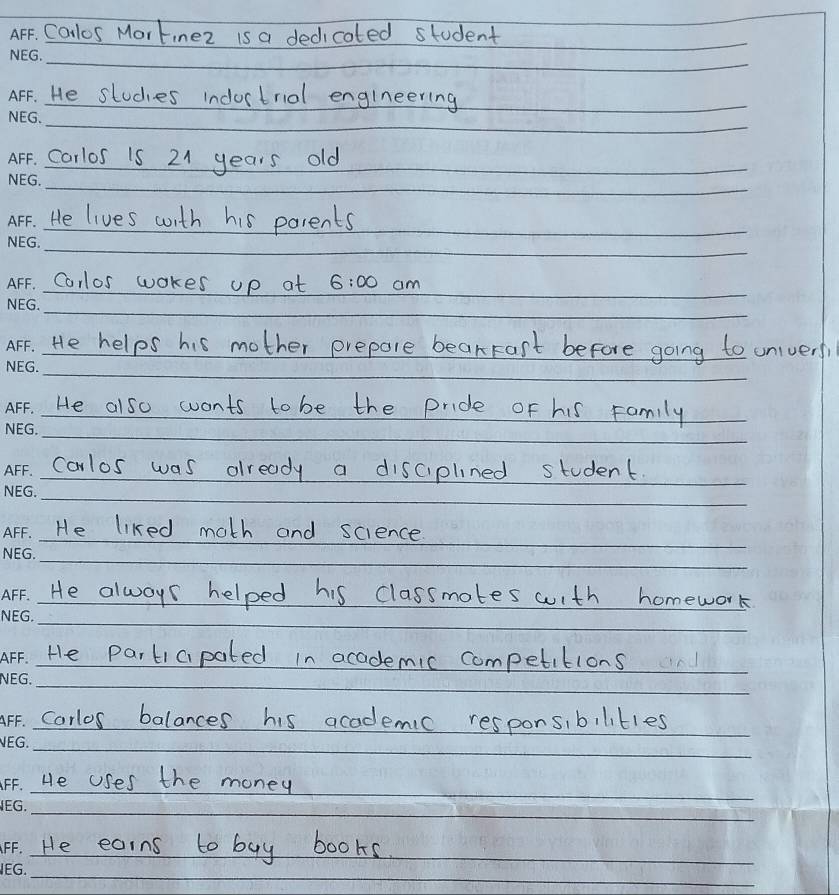 AFF. Carlos Martinez is a dedicated student
NEG.
AFF. He studies industrial engineering
NEG.
AFF. Carlos is 21 years old
NEG.
AFF. He lives with his parents
NEG.
AFF. Carlos wakes up at 6:00 am
NEG.
AFF. He helps his mother prepare bearkfast before going to universi
NEG.
AFF. He also wants to be the pride of his family
NEG.
AFF. Carlos was already a disciplined student.
NEG.
AFF. He liked math and science.
NEG.
AFF. He always helped his classmates with homework.
NEG.
AFF. He participated in academic competitions and
NEG.
AFF. Carlos balances his academic responsibilities
NEG.
AFF. He uses the money
NEG.
AFF. He earns to buy books.
NEG.